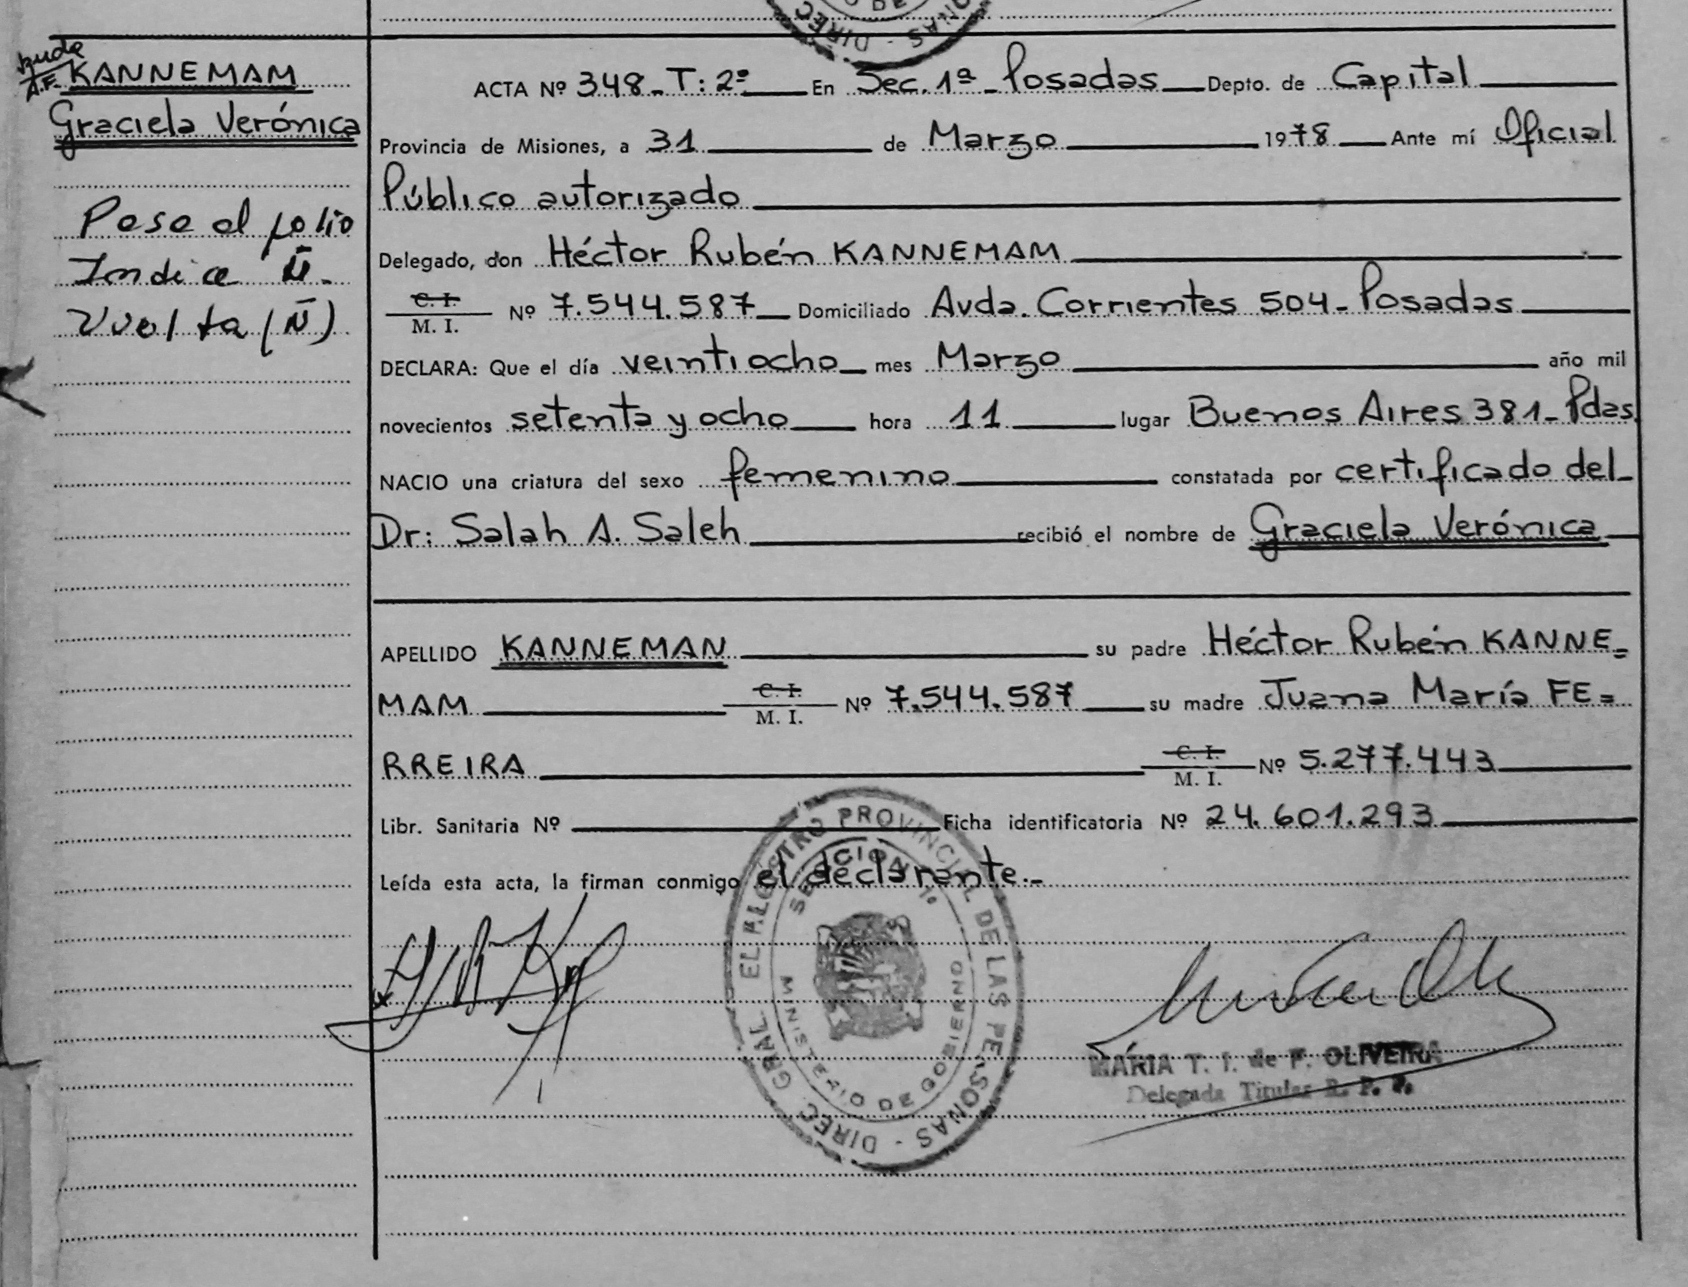 KANNEMAM
Graciela Verónica
Pase al folio
Indice Ñ.
Vuelta (Ñ)
ACTA Nº 348_ T: 2º En Sec. 1ª_ Posadas Depto. de Capital
Provincia de Misiones, a 31 de Marzo 1978 Ante mí Oficial
Público autorizado
Delegado, don Héctor Rubén KANNEMAM
C. I.
M. I. Nº 7.544.587 Domiciliado Avda. Corrientes 504_ Posadas
DECLARA: Que el día veintiocho mes Marzo año mil
novecientos setenta y ocho hora 11 lugar Buenos Aires 381_ Pdas.
NACIO una criatura del sexo femenino constatada por certificado del
Dr: Salah A. Saleh recibió el nombre de Graciela Verónica
APELLIDO KANNEMAN su padre Héctor Rubén KANNE=
MAM C. I.
M. I. Nº 7.544.587 su madre Juana María FE=
RREIRA C. I.
M. I. Nº 5.277.443
Libr. Sanitaria Nº Ficha identificatoria Nº 24.601.293
Leída esta acta, la firman conmigo el declarante._
DIREC. GRAL. REGISTRO PROVINCIAL DE LAS PERSONAS
SECCION 1ª
MINISTERIO DE GOBIERNO
MARIA T. I. de F. OLIVEIRA
Delegada Titular R. P. P.